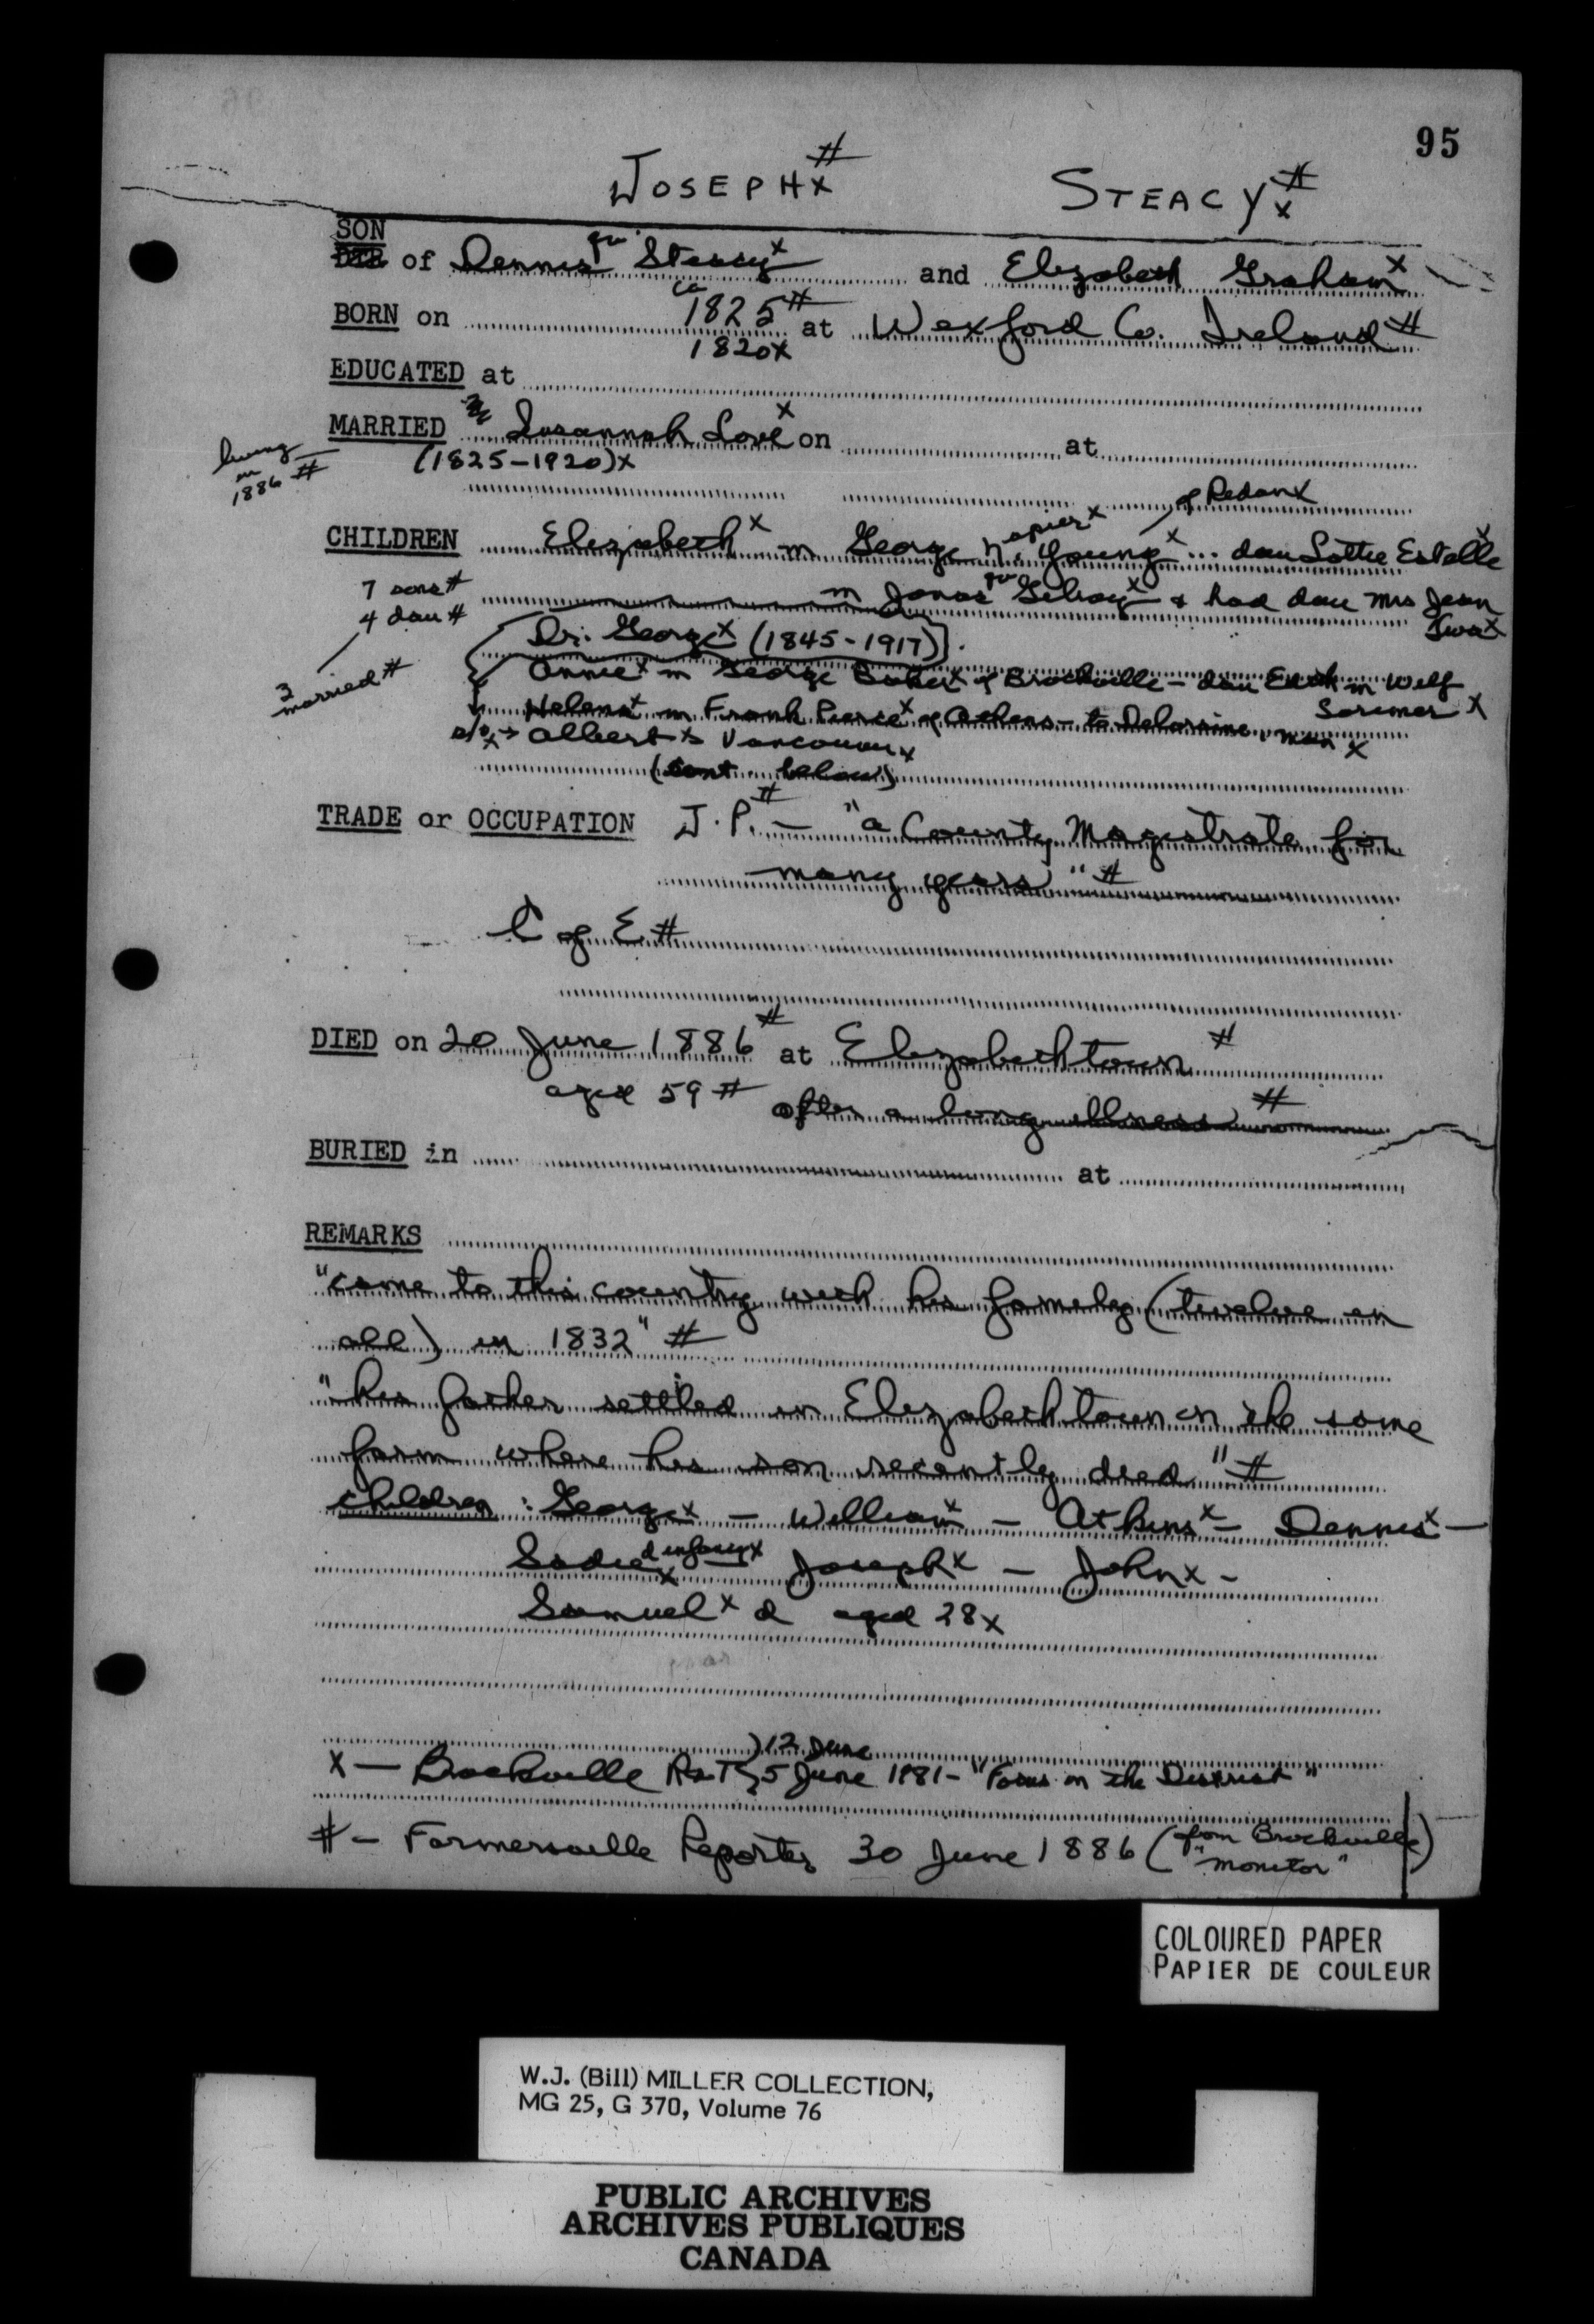 95
JOSEPH x # STEACY # x
SON
DTR of Dennis qv Steacy x and Elizabeth Graham x
BORN on ca 1825 # at Wexford Co. Ireland #
1820 x
EDUCATED at
MARRIED Susannah Love x on at
(1825-1920) x
living in 1886 #
of Redan x
CHILDREN Elizabeth x m George Napier x Young x ... dau Lottie Estelle x
7 sons #
4 dau #
m Jonas qv Gilroy x & had dau Mrs Jean
Dr. George x (1845-1917)
3 married #
Annie x m George x of Brockville - dau m Wilf
Helena x m Frank Pierce x of Athens - to Deloraine, Man x
Albert x Vancouver x
(cont. below)
TRADE or OCCUPATION J.P. # - "a County Magistrate for
many years" #
C of E #
DIED on 20 June 1886 # at Elizabethtown #
aged 59 # after a long illness #
BURIED in at
REMARKS
"came to this country with his family (twelve in
all) in 1832" #
"his father settled in Elizabethtown on the same
farm where his son recently died" #
children: George x - William x - Atkins x - Dennis x -
Sadie x d infancy x Joseph x - John x -
Samuel x d aged 28 x
12 June
x - Brockville R&T 5 June 1981 - "Focus on the District"
# - Farmersville Reporter 30 June 1886 (from Brockville "Monitor")
COLOURED PAPER
PAPIER DE COULEUR
W.J. (Bill) MILLER COLLECTION,
MG 25, G 370, Volume 76
PUBLIC ARCHIVES
ARCHIVES PUBLIQUES
CANADA